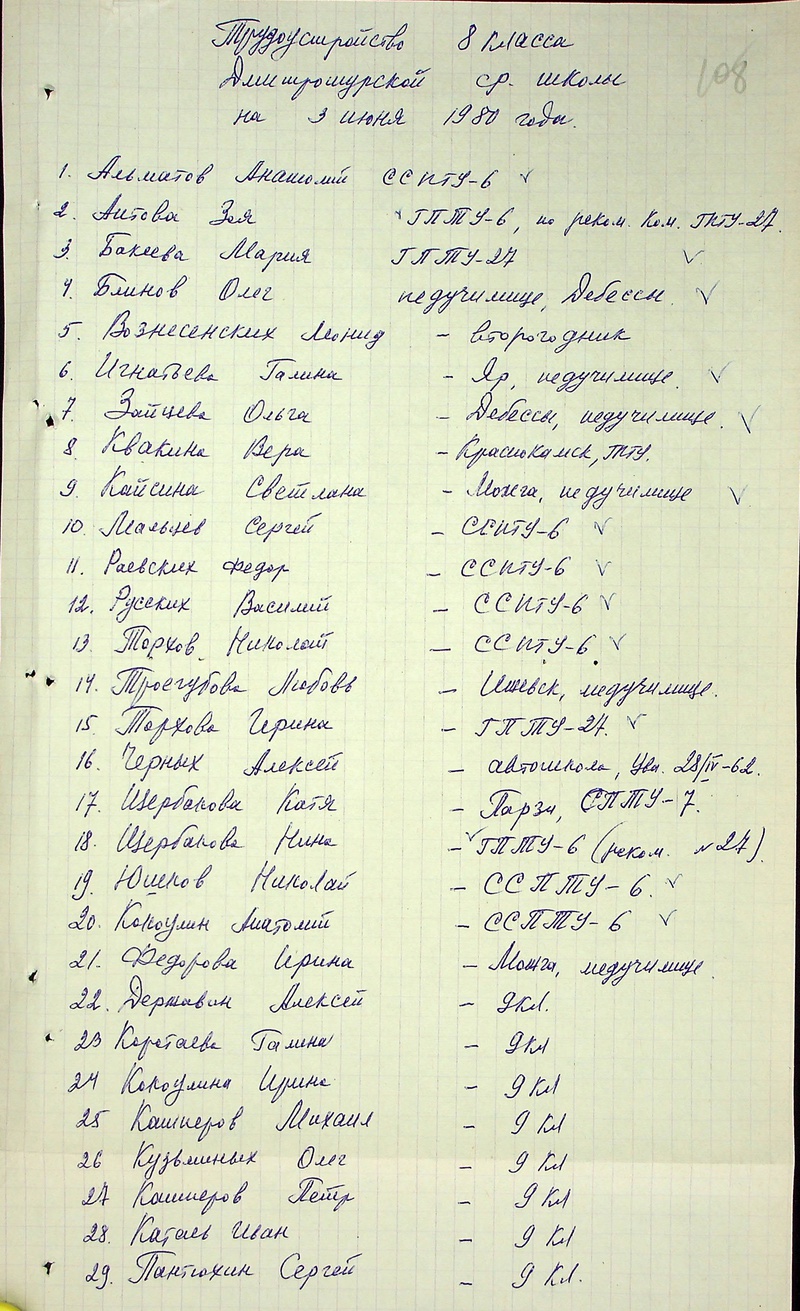 108
Трудоустройство 8 класса
Дмитрошурской ср. школы
на 3 июня 1980 года.
1. Альматов Анатолий ССПТУ-6 ✓
2. Аитова Зоя ✓ ГПТУ-6, по реком. Ком. ГПТУ-27.
3. Бакеева Мария ГПТУ-27 ✓
4. Блинов Олег педучилище, Дебессы. ✓
5. Вознесенских Леонид - второгодник
6. Игнатьева Галина - Яр, педучилище. ✓
7. Зайцева Ольга - Дебессы, педучилище. ✓
8. Квакина Вера - Краснокамск, ТТУ.
9. Кайсина Светлана - Можга, педучилище ✓
10. Мальцев Сергей - ССПТУ-6 ✓
11. Раевских Федор - ССПТУ-6 ✓
12. Русских Василий - ССПТУ-6 ✓
13 Торхов Николай - ССПТУ-6 ✓
14. Трегубова Любовь - Ижевск, педучилище.
15 Торхова Ирина - ГПТУ-27. ✓
16. Черных Алексей - автошкола, Ува. 28/IV-62.
17. Щербакова Катя - Парзи, СПТУ-7.
18. Щербакова Нина - ✓ ГПТУ-6 (реком. №27).
19. Юшков Николай - ССПТУ-6. ✓
20. Кокоулин Анатолий - ССПТУ-6 ✓
21. Федорова Ирина - Можга, педучилище.
22. Державин Алексей - 9кл.
23 Коротаева Галина - 9кл
24 Кокоулина Ирина - 9 кл
25 Кашперов Михаил - 9 кл
26 Кузьминых Олег - 9 кл
27 Кашперов Петр - 9 кл
28. Катаев Иван - 9 кл
29. Пантюхин Сергей - 9 кл.